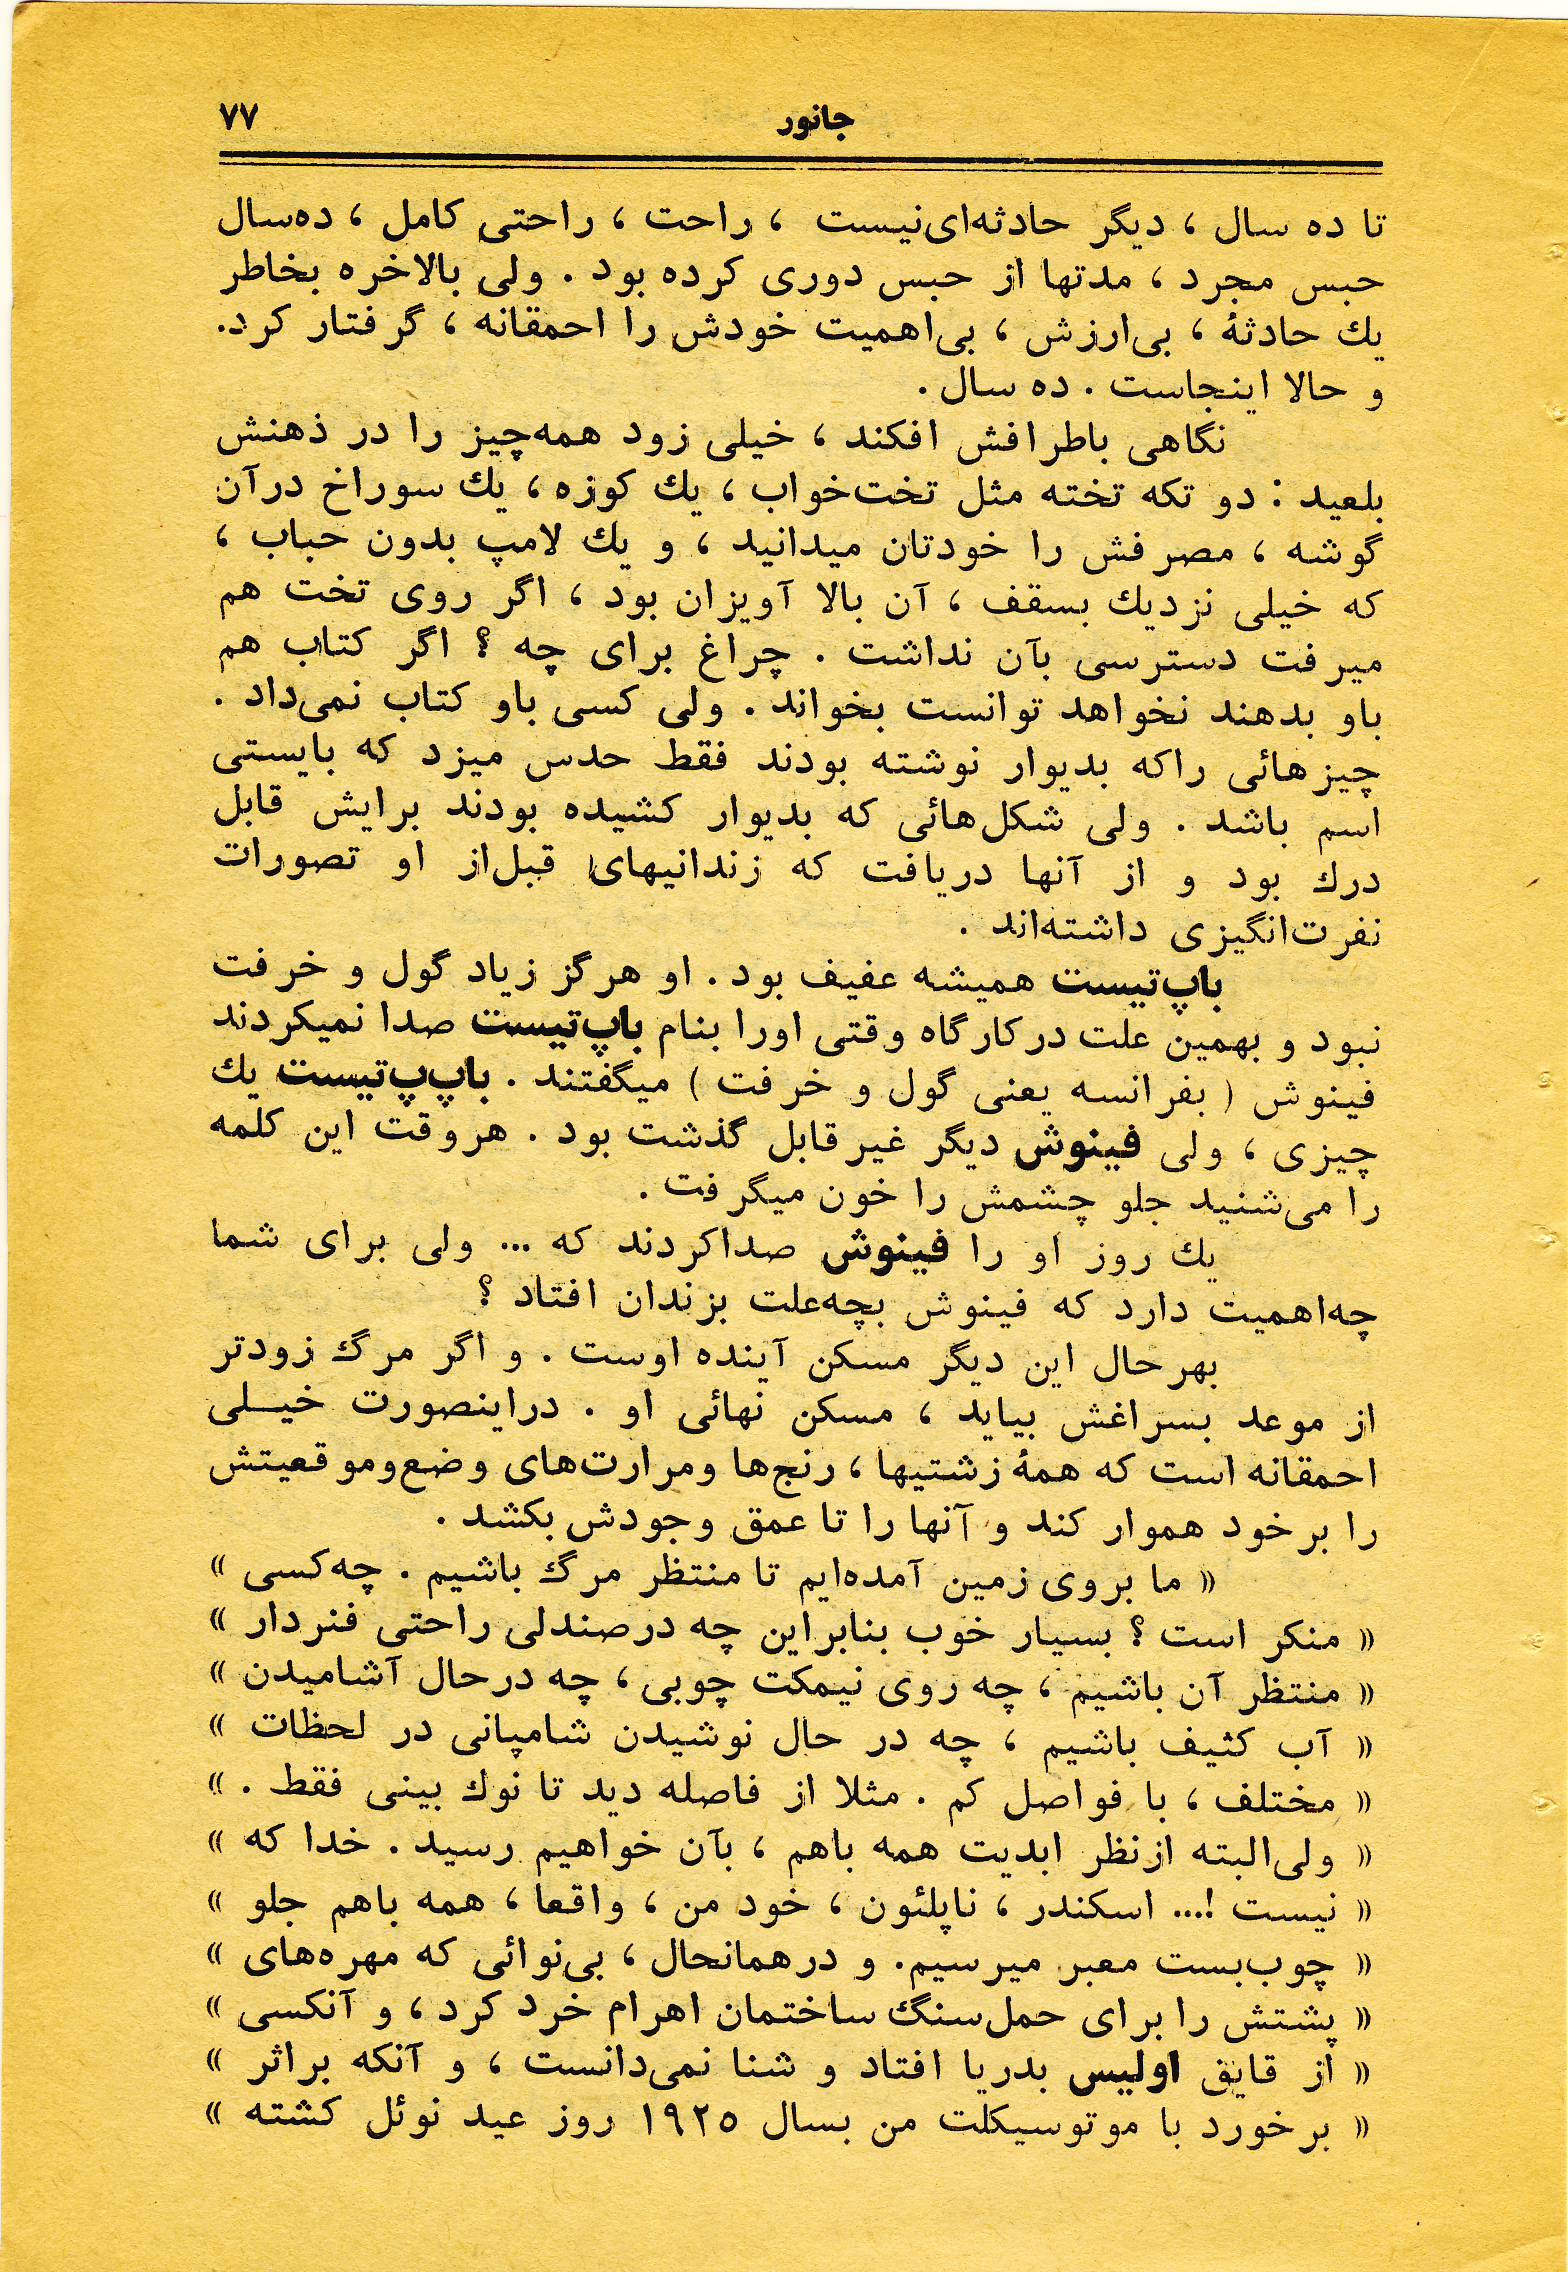 جانور
۷۷
تا ده سال ، دیگر حادثه‌ای‌نیست ، راحت ، راحتی کامل ، ده‌سال
حبس مجرد ، مدتها از حبس دوری کرده بود . ولی بالاخره بخاطر
یك حادثهٔ ، بی‌ارزش ، بی‌اهمیت خودش را احمقانه ، گرفتار کرد.
و حالا اینجاست . ده سال .
نگاهی باطرافش افکند ، خیلی زود همه‌چیز را در ذهنش
بلعید : دو تکه تخته مثل تخت‌خواب ، یك کوزه ، یك سوراخ درآن
گوشه ، مصرفش را خودتان میدانید ، و یك لامپ بدون حباب ،
که خیلی نزدیك بسقف ، آن بالا آویزان بود ، اگر روی تخت هم
میرفت دسترسی بآن نداشت . چراغ برای چه ؟ اگر کتاب هم
باو بدهند نخواهد توانست بخواند . ولی کسی باو کتاب نمی‌داد .
چیزهائی راکه بدیوار نوشته بودند فقط حدس میزد که بایستی
اسم باشد . ولی شکل‌هائی که بدیوار کشیده بودند برایش قابل
درك بود و از آنها دریافت که زندانیهای قبل‌از او تصورات
نفرت‌انگیزی داشته‌اند .
باپ‌تیست همیشه عفیف بود . او هرگز زیاد گول و خرفت
نبود و بهمین علت درکارگاه وقتی اورا بنام باپ‌تیست صدا نمیکردند
فینوش ( بفرانسه یعنی گول و خرفت ) میگفتند . باپ‌پ‌تیست یك
چیزی ، ولی فینوش دیگر غیرقابل گذشت بود . هروقت این کلمه
را می‌شنید جلو چشمش را خون میگرفت .
یك روز او را فینوش صداکردند که ... ولی برای شما
چه‌اهمیت دارد که فینوش بچه‌علت بزندان افتاد ؟
بهرحال این دیگر مسکن آینده اوست . و اگر مرگ زودتر
از موعد بسراغش بیاید ، مسکن نهائی او . دراینصورت خیـلی
احمقانه است که همهٔ زشتیها ، رنج‌ها ومرارت‌های وضع‌وموقعیتش
را برخود هموار کند و آنها را تا عمق وجودش بکشد .
« ما بروی زمین آمده‌ایم تا منتظر مرگ باشیم . چه‌کسی »
« منکر است ؟ بسیار خوب بنابراین چه درصندلی راحتی فنردار »
« منتظر آن باشیم ، چه روی نیمکت چوبی ، چه درحال آشامیدن »
« آب کثیف باشیم ، چه در حال نوشیدن شامپانی در لحظات »
« مختلف ، با فواصل کم . مثلا از فاصله دید تا نوك بینی فقط . »
« ولی‌البته ازنظر ابدیت همه باهم ، بآن خواهیم رسید . خدا که »
« نیست !... اسکندر ، ناپلئون ، خود من ، واقعا ، همه باهم جلو »
« چوب‌بست معبر میرسیم. و درهمانحال ، بی‌نوائی که مهره‌های »
« پشتش را برای حمل‌سنگ ساختمان اهرام خرد کرد ، و آنکسی »
« از قایق اولیس بدریا افتاد و شنا نمی‌دانست ، و آنکه براثر »
« برخورد با موتوسیکلت من بسال ۱۹۲۵ روز عید نوئل کشته »